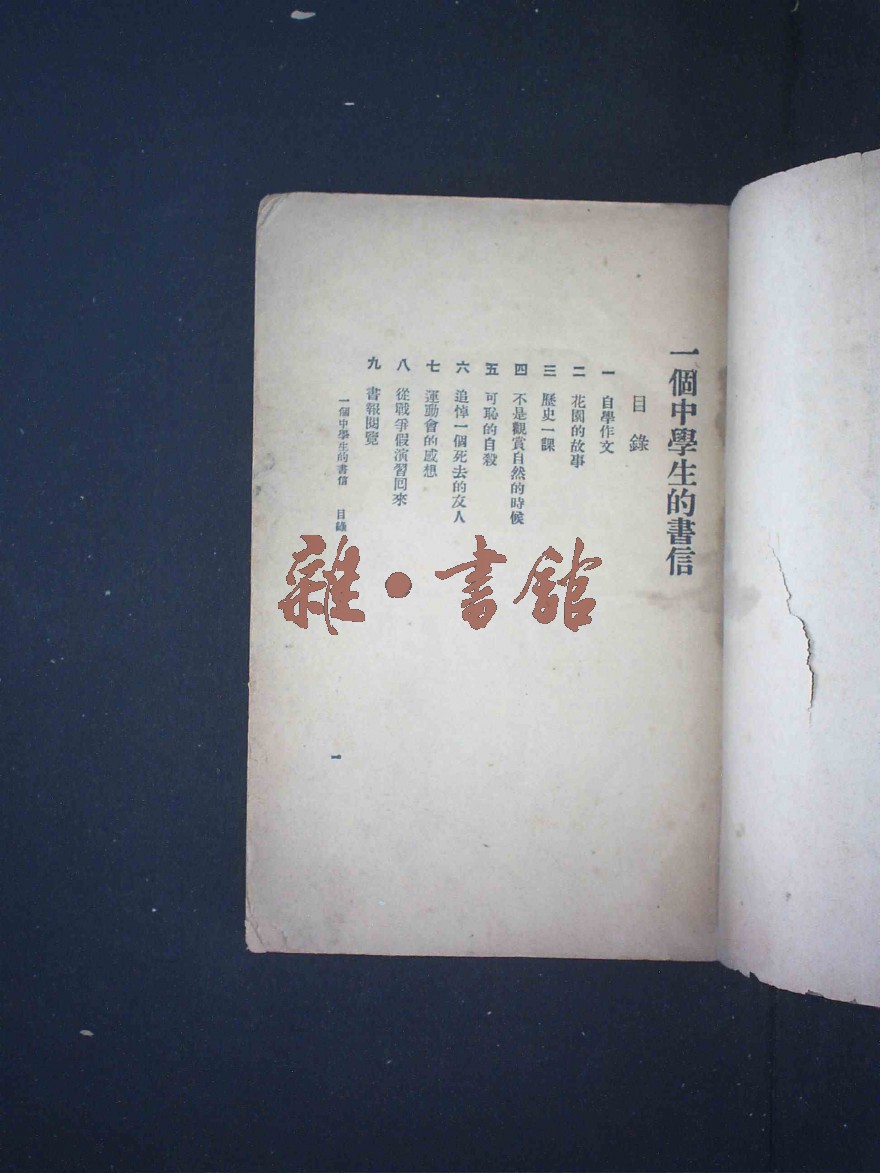 一個中學生的書信
目錄
一 自學作文
二 花園的故事
三 歷史一課
四 不是觀賞自然的時候
五 可恥的自殺
六 追悼一個死去的友人
七 運動會的感想
八 從戰爭假演習回來
九 書報閱覽
一個中學生的書信 目錄
一
雜•書館